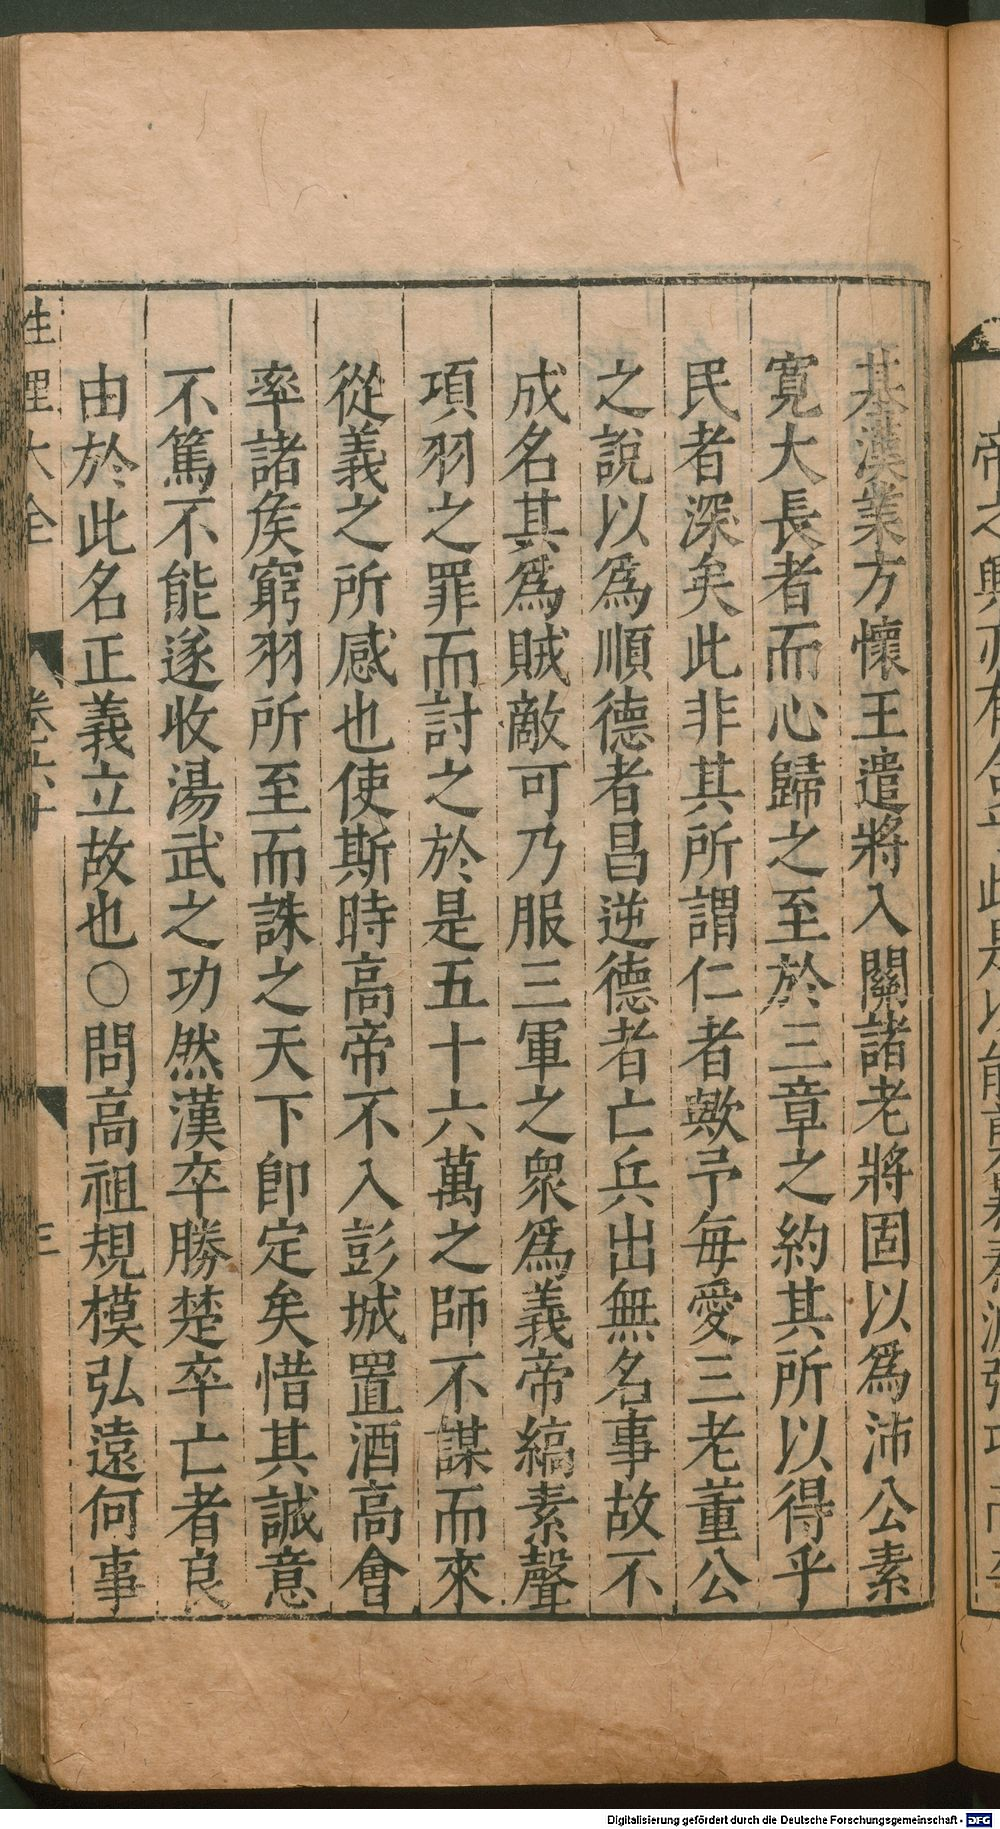 基漢業方懷王遣將入關諸老將固以爲沛公素
寬大長者而心歸之至於三章之約其所以得乎
民者深矣此非其所謂仁者歟予毎愛三老董公
之說以爲順德者昌逆德者亡兵出無名事故不
成名其爲賊敵可乃服三軍之衆爲義帝縞素聲
項羽之罪而討之於是五十六萬之師不謀而來
從義之所感也使斯時高帝不入彭城置酒高會
率諸矦窮羽所至而誅之天下卽定矣惜其誠意
不篤不能遂收湯武之功然漢卒勝楚卒亡者良
由於此名正義立故也○問高祖規模弘遠何事
性理大全 卷六十 三
Digitalisierung gefördert durch die Deutsche Forschungsgemeinschaft - DFG